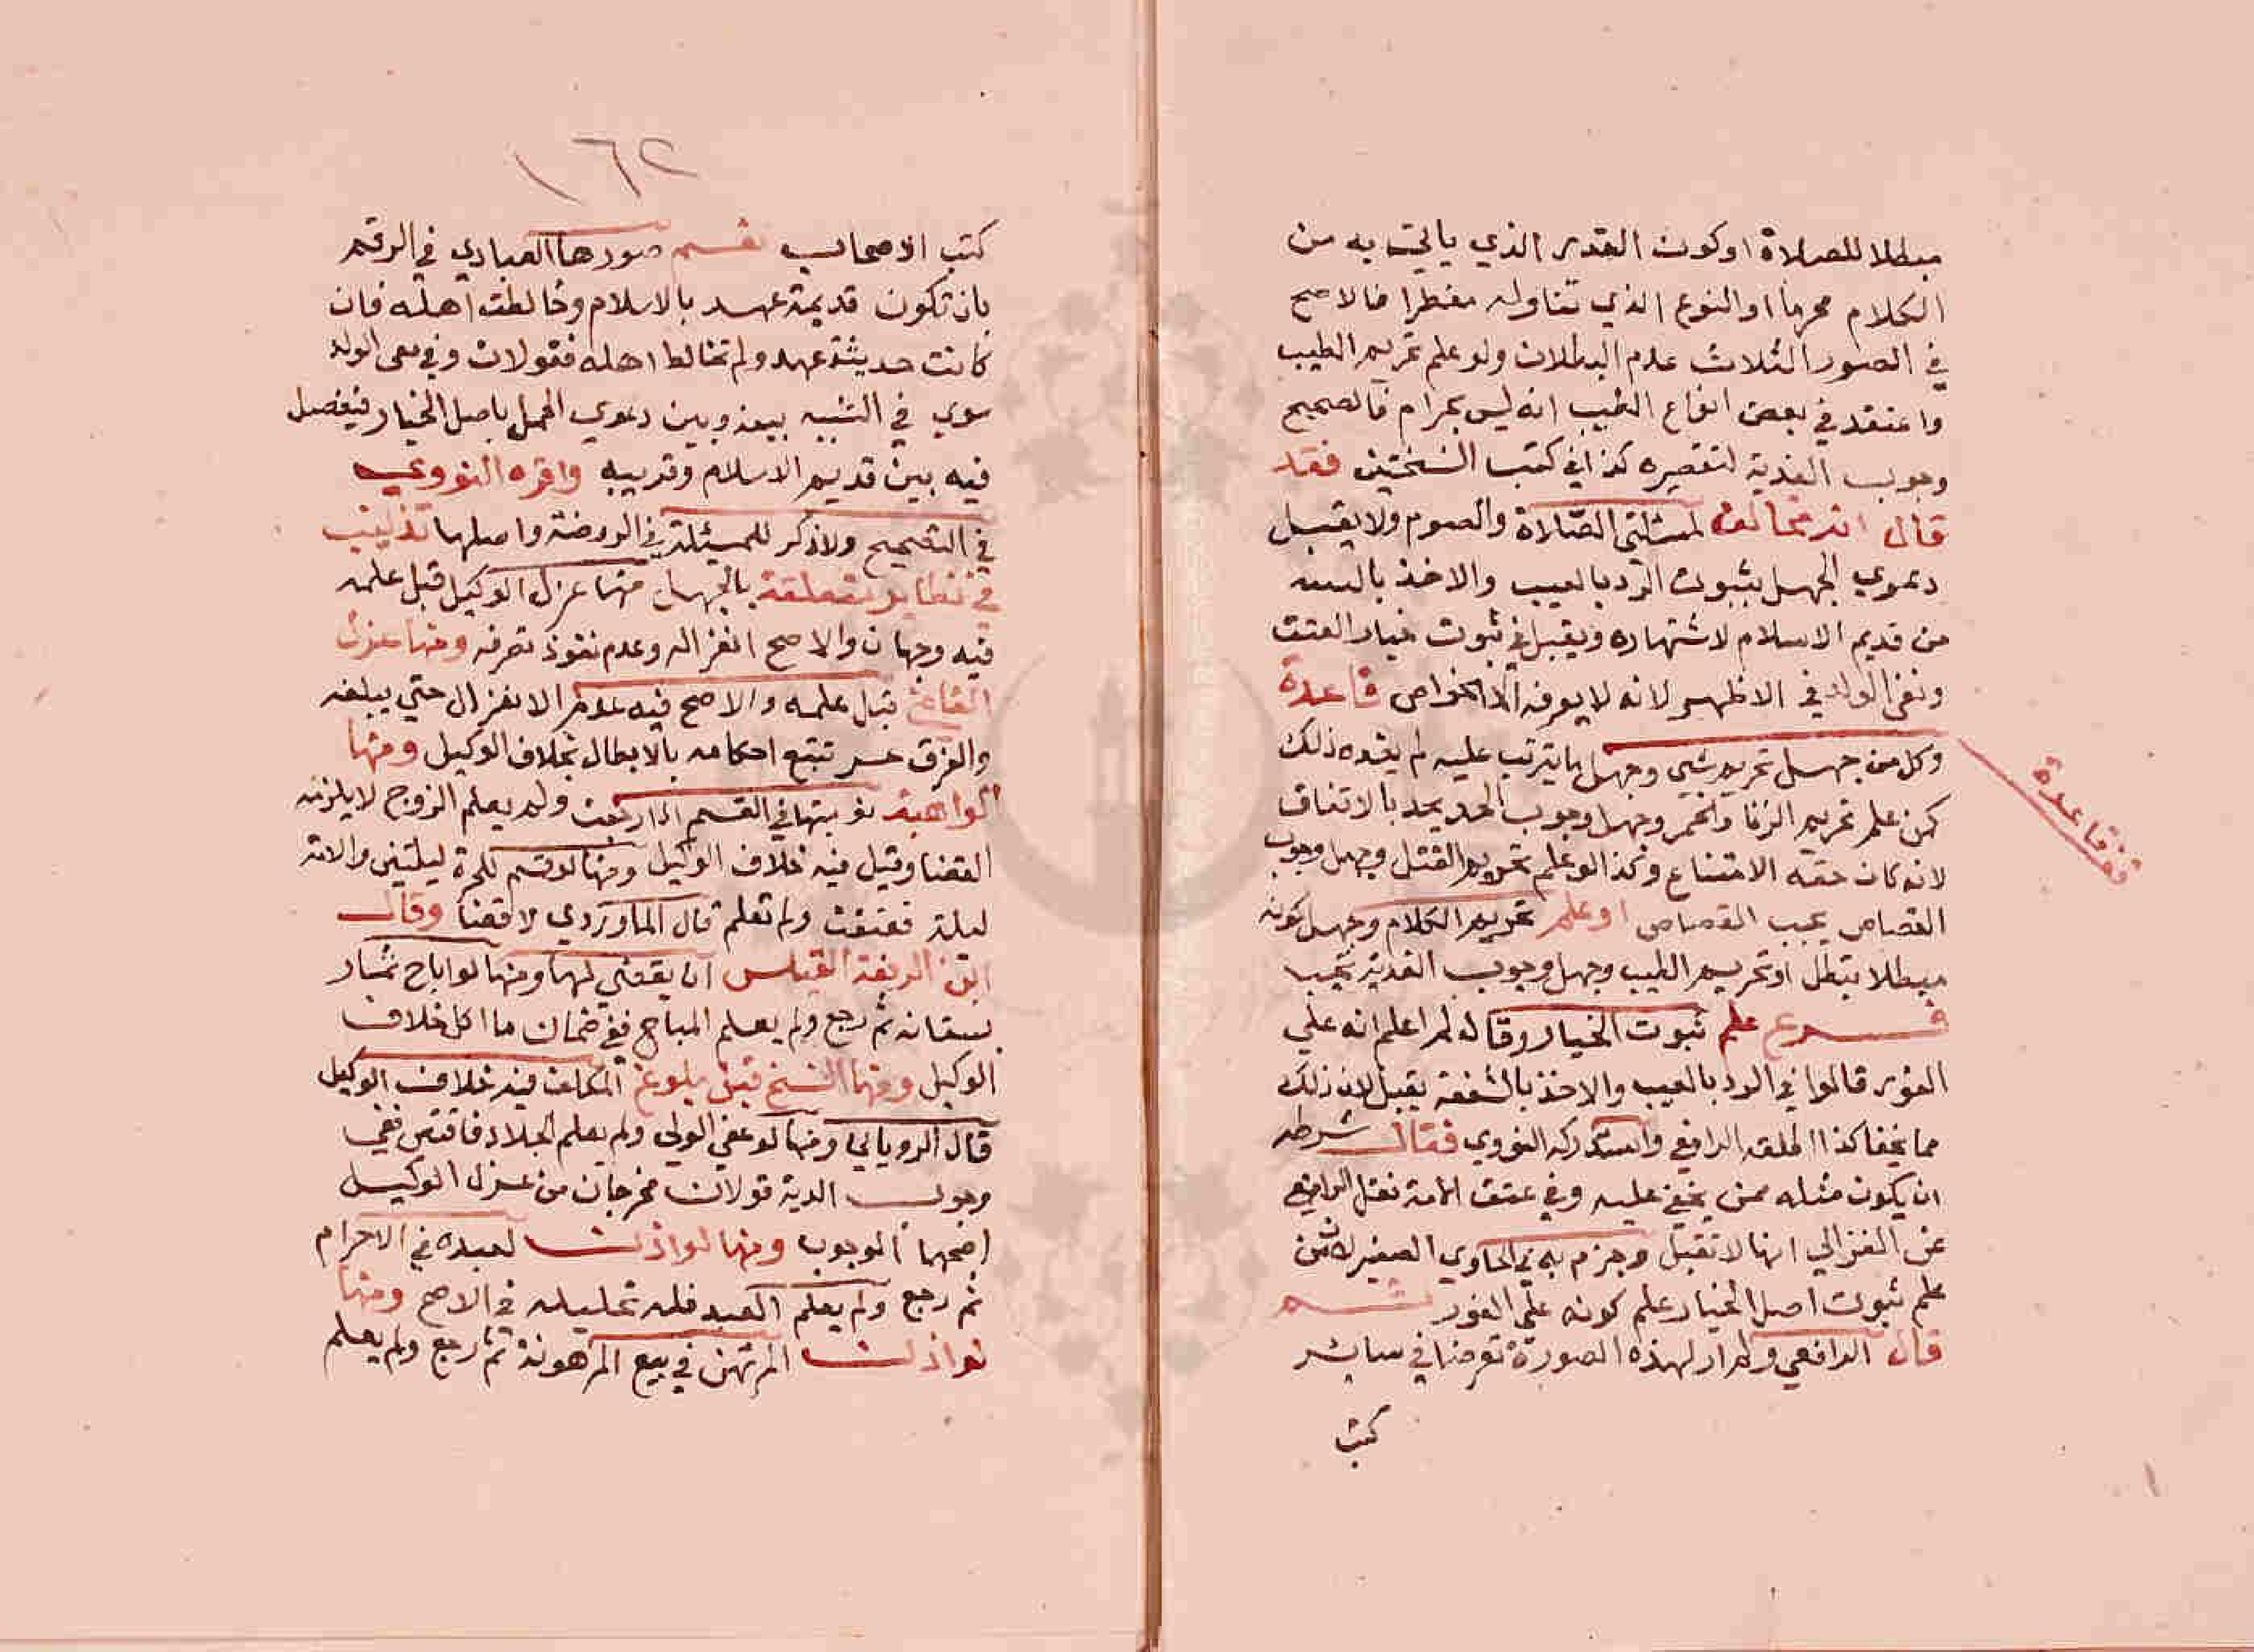 مبطلا للصلاة او كون القدر الذي ياتي به من
الكلام محرما او النوع الذي تناوله مفطرا فالاصح
في الصور الثلاث عدم البطلان ولو علم تحريم الطيب
واعتقد في بعض انواع الطيب انه ليس بحرام فالصحيح
وجوب الفدية لتقصيره كذا في كتب الشيخين فقد
قال انه مخالف لمسئلتي الصلاة والصوم ولا يقبل
دعوي الجهل بثبوت الرد بالعيب والاخذ بالسنه
من قديم الاسلام لاشتهاره ويقبل في ثبوت خيار العتق
ونفي الولد في الاظهر لانه لا يعرفه الا الخواص قاعدة
وكل من جهل تحريم شي وجهل ما يترتب عليه لم يفده ذلك
كمن علم تحريم الزنا والخمر وجهل وجوب الحد يحد بالاتفاق
لانه كان حقه الامتناع وكذا لو علم تحريم القتل وجهل وجوب
القصاص يجب القصاص او علم تحريم الكلام وجهل كونه
مبطلا بتطل او تحريم الطيب وجهل وجوب الفدية تجب
فرع علم ثبوت الخيار وقال لم اعلم انه علي
الفور قالوا في الرد بالعيب والاخذ بالشفعة يقبل لان ذلك
مما يخفا كذا اطلقه الرافعي واستدركه النووي فقال شرطه
ان يكون مثله ممن يخفي عليه وفي عتق الامة نقل الرافعي
عن الغزالي انها لا تقبل وجزم به في الحاوي الصغير لان من
علم ثبوت اصل الخيار علم كونه علي الفور ثم
قال الرافعي ولم ار لهذه الصورة تعرضا في سائر
كتب
قف قاعدة
١٦٢
كتب الاصحاب نعم صورها العبادي في الرقم
بان تكون قديمة عهد بالاسلام وخالطت اهله فان
كانت حديثة عهد ولم تخالط اهله فقولان وفي نفي الولد
سوي في التنبيه بينه وبين دعوي الجهل باصل الخيار فيفصل
فيه بين قديم الاسلام وقريبه واقره النووي
في التصحيح ولا ذكر للمسئلة في الروضة واصلها تذنيب
في نظاير متعلقة بالجهل منها عزل الوكيل قبل علمه
فيه وجهان والاصح انعزاله وعدم نفوذ تصرفه ومنها عزل
القاضي قبل علمه والاصح فيه عدم الانعزال حتي يبلغه
والفرق عسر تتبع احكامه بالابطال بخلاف الوكيل ومنها
الواهبة نوبتها في القسم اذا رجعت ولم يعلم الزوج لا يلزمه
القضا وقيل فيه خلاف الوكيل ومنها لو قسم للحرة ليلتين والامة
ليلة فعتقت ولم تعلم قال الماوردي لا قضا وقال
ابن الرفعة القياس ان يقضي لها ومنها لو اباح ثمار
بستانه ثم رجع ولم يعلم المباح ففي ضمان ما اكل خلاف
الوكيل ومنها النسخ قبل بلوغ المكلف فيه خلاف الوكيل
قال الروياني ومنها لو عفي الولي ولم يعلم الجلاد فاقتص ففي
وجوب الدية قولان مخرجان من عزل الوكيل
اصحهما الوجوب ومنها لو اذن لعبده في الاحرام
ثم رجع ولم يعلم العبد فله تحليله في الاصح ومنها
لو اذن المرتهن في بيع المرهونة ثم رجع ولم يعلم